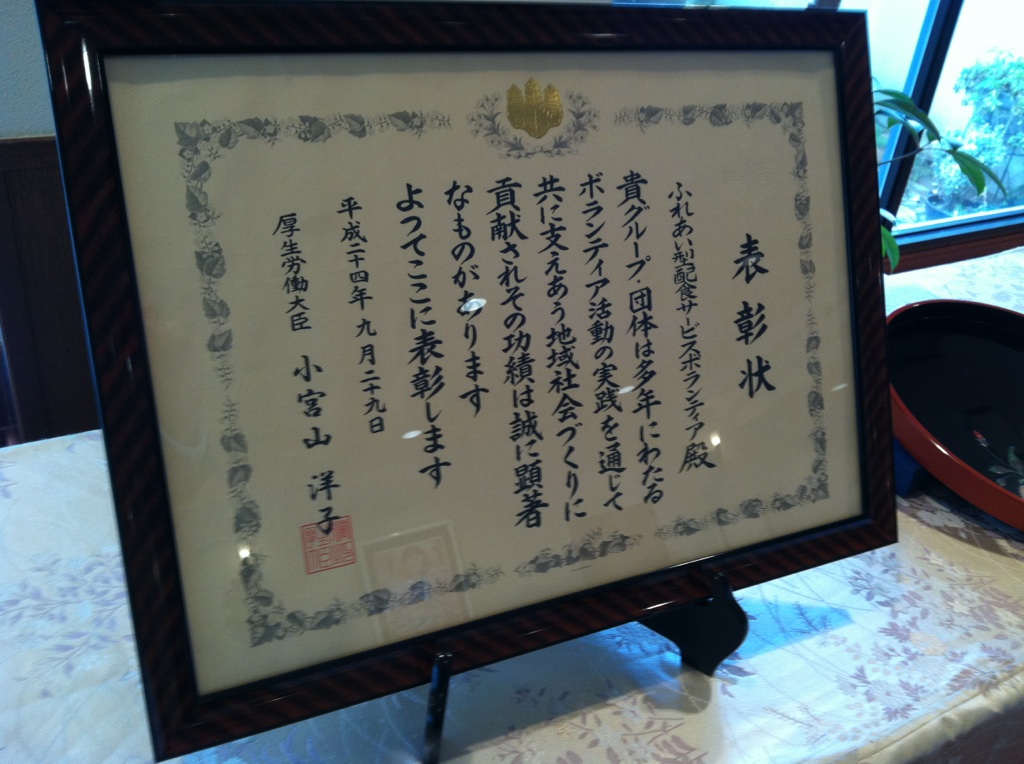 表彰状
ふれあい型配食サービスボランティア殿
貴グループ・団体は多年にわたる
ボランティア活動の実践を通じて
共に支えあう地域社会づくりに
貢献されその功績は誠に顕著
なものがあります
よってここに表彰します
平成二十四年九月二十九日
厚生労働大臣 小宮山洋子